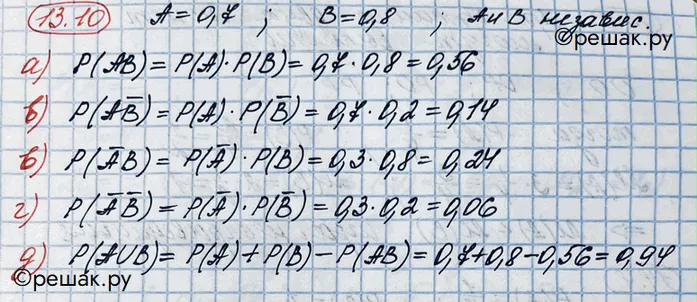 13.10 A = 0,7 ; B = 0,8 ; A и B независ.
©решак.ру
а) P(AB) = P(A)·P(B) = 0,7·0,8 = 0,56
в) P(AB̅) = P(A)·P(B̅) = 0,7·0,2 = 0,14
в) P(A̅B) = P(A̅)·P(B) = 0,3·0,8 = 0,24
г) P(A̅B̅) = P(A̅)·P(B̅) = 0,3·0,2 = 0,06
д) P(A∪B) = P(A) + P(B) – P(AB) = 0,7+0,8–0,56 = 0,94
©решак.ру